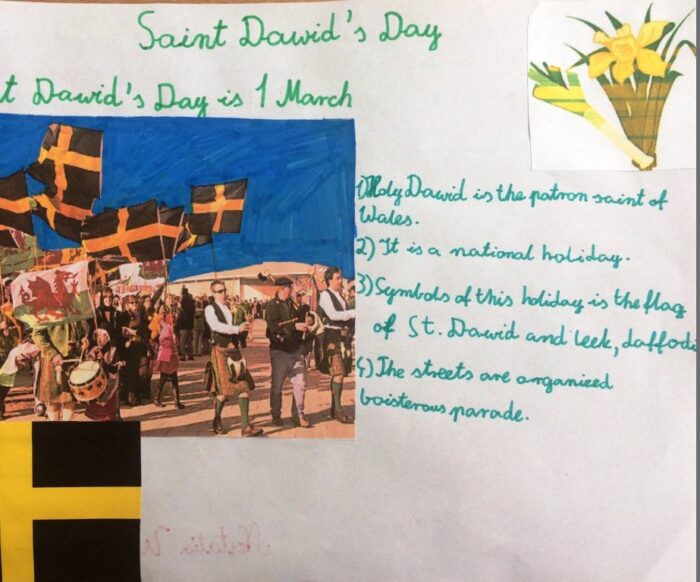 Saint Dawid's Day
t Dawid's Day is 1 March
1) Holy Dawid is the patron saint of
Wales.
2) It is a national holiday.
3) Symbols of this holiday is the flag
of St. Dawid and leek, daffodi
4) The streets are organized
boisterous parade.
Natalia W